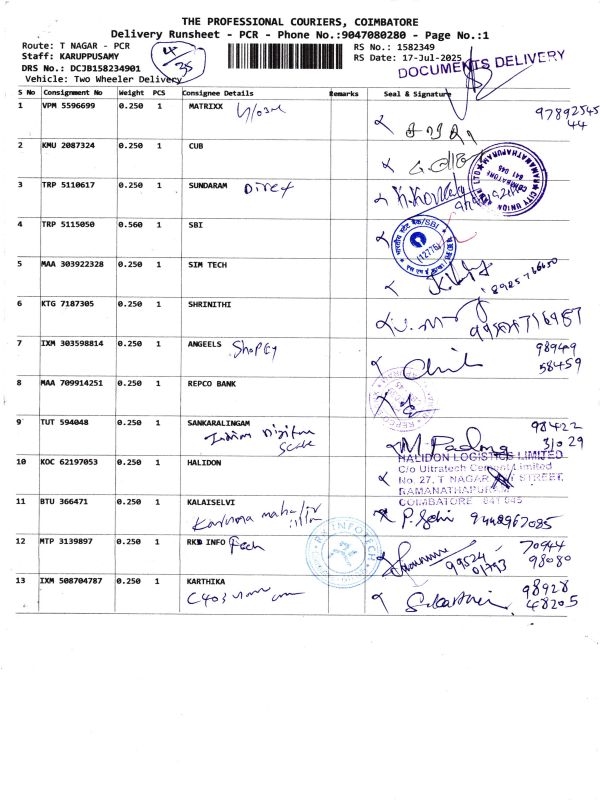 THE PROFESSIONAL COURIERS, COIMBATORE
Delivery Runsheet - PCR - Phone No.:9047080280 - Page No.:1
Route: T NAGAR - PCR
Staff: KARUPPUSAMY
DRS No.: DCJB158234901
Vehicle: Two Wheeler Delivery
4/35
RS No.: 1582349
RS Date: 17-Jul-2025
DOCUMENTS DELIVERY
S No Consignment No Weight PCS Consignee Details Remarks Seal & Signature
1 VPM 5596699 0.250 1 MATRIXX
97892545
44
2 KMU 2087324 0.250 1 CUB
CITY UNION
RAMANATHAPURAM
COIMBATORE
641 045
3 TRP 5110617 0.250 1 SUNDARAM Direct
4 TRP 5115050 0.560 1 SBI
SBI
(12776)
5 MAA 303922328 0.250 1 SIM TECH
8925766650
6 KTG 7187305 0.250 1 SHRINITHI
7 IXM 303598814 0.250 1 ANGEELS Shopey
98949
58459
8 MAA 709914251 0.250 1 REPCO BANK
9 TUT 594048 0.250 1 SANKARALINGAM
Scale
M. Padma
98422
31029
10 KOC 62197053 0.250 1 HALIDON
HALIDON LOGISTICS LIMITED
C/o Ultratech Cement Limited
No. 27, T NAGAR STREET,
RAMANATHAPURAM
COIMBATORE 641 045
11 BTU 366471 0.250 1 KALAISELVI
Karuna
P. Selvi 9448967085
12 MTP 3139897 0.250 1 RKD INFO Tech
RK INFOTECH
99524
01793
70944
98080
13 IXM 508704787 0.250 1 KARTHIKA
C403
98928
48205